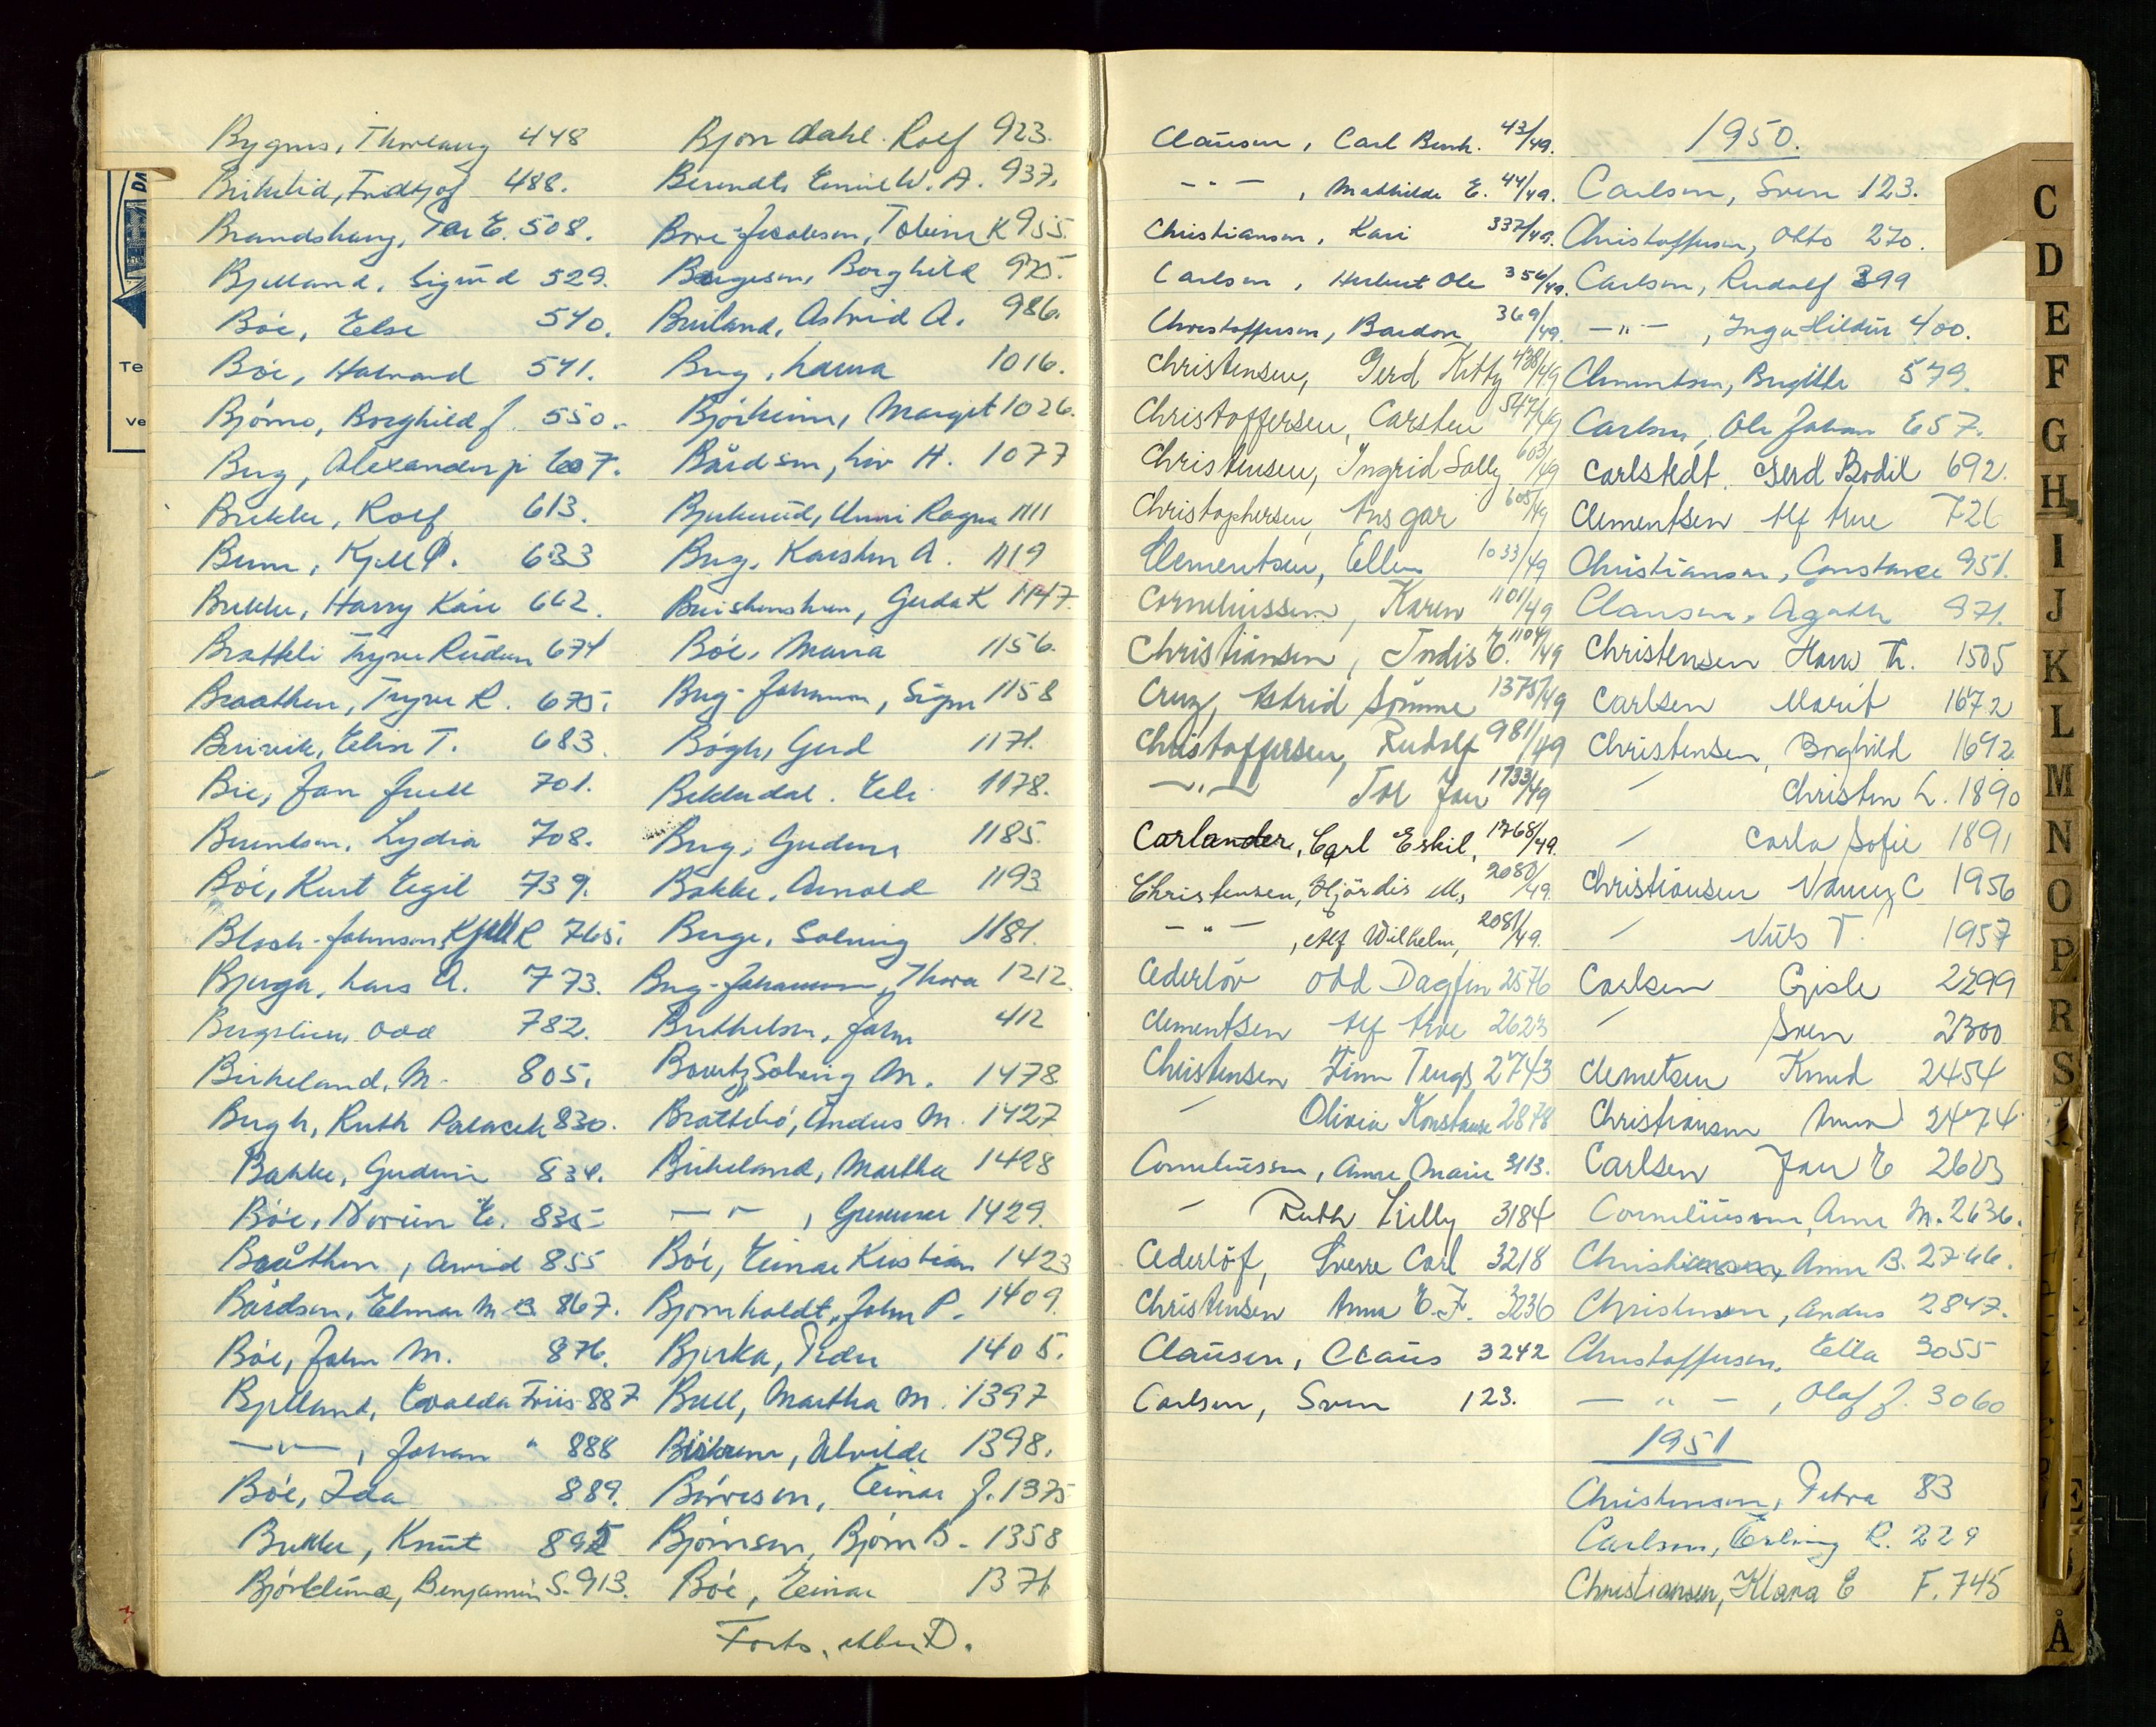 Bygnes, Thorlaug 448
Birkelid, Fridtjof 488.
Brandshaug, Per E. 508.
Bjelland, Sigrid 529.
Bøe, Else 540.
Bøe, Halvard 541.
Bjørno, Borghild J. 550.
Berg, Alexander jr 607.
Brekke, Rolf 613.
Kjell P. 633
Brekke, Harry Kåre 662.
Bratteli Trygve Reidun 674
Braathen, Trygve R. 675.
Elin T. 683.
Bie, Jan Juell 701.
Berentsen, Lydia 708.
Bøe, Kurt Egil 739.
Bloch-Johnsen, Kjell R 765.
Bjerga, Lars A. 773.
Odd 782.
Birkeland, M. 805.
Bergh, Ruth Palacek 830.
Bakke, Gudrun 834.
Bøe, Norunn E. 835
Braathen, Arvid 855
Bårdsen, Elmar M. B. 867.
Bøe, John M. 876.
Bjelland, Evalda Friis 887
— " — , Johan " 888
Bøe, Ida 889.
Brekke, Knut 895
Bjørklund, Benjamin S. 913.
Bjørndahl Rolf 923.
Berendt, Emil W. A. 937.
Bore-Jacobsen, Tobine K 955.
Borghild 975.
Astrid A. 986.
Berg, Laura 1016.
Bjørheim, Margit 1026.
Bårdsen, Liv H. 1077
Bjerkreid, Unni Ragna 1111
Berg, Karsten A. 1119
Gerda K 1147.
Bøe, Maria 1156.
Berg-Johannesen, Signe 1158
Bøgh, Gerd 1171.
Bekkedal. Eli 1178.
Berg, Gudrun 1185.
Bakke, Arnold 1193
Berge, Solveig 1181.
Berg-Johannesen, Thora 1212.
Berthelsen, John 412
Solveig M. 1478.
Brattebø, Anders M. 1427
Birkeland, Martha 1428
— " — , Gunnar 1429.
Bøe, Einar Kristian 1423
Bjørnholdt, John P. 1409.
Bjerka, Peder 1405.
Bull, Martha M. 1397
Alvilde 1398.
Børresen, Einar J. 1375
Bjørnsen, Bjørn B. 1358
Bøe, Einar 1371
Forts. etter D.
Clausen, Carl Bernh. 43/49.
— " — , Mathilde E. 44/49.
Christiansen, Kari 337/49.
Carlsen, Herbert Ole 356/49.
Christoffersen, Baldon 369/49.
Christensen, Gerd Kitty 438/49
Christoffersen, Carsten 547/49
Christensen, Ingrid Solly 603/49
Christophersen, Ansgar 605/49
Clementsen, Ellen 1033/49
Corneliussen, Karen 1101/49
Christiansen, Indis E. 1104/49
Cruz, Astrid Sømme 1375/49
Christoffersen, Rudolf 981/49
— " — Tor Jan 1733/49
Carlander, Carl Eskil, 1768/49.
Christensen, Hjördis M., 2080/49.
— " — , Alf Wilhelm, 2081/49.
Cederløv Odd Dagfin 2576
Clementsen Alf Arve 2623
Christensen Finn Tengs 2743
" Olivia Konstanse 2878
Corneliussen, Anne Marie 3113.
" Ruth Lilly 3184
Cederløf, Sverre Carl 3218
Christensen Anna E. F. 3236
Clausen, Claus 3242
Carlsen, Sven 123.
1950.
Carlsen, Sven 123.
Christoffersen, Otto 270.
Carlsen, Rudolf 399
— " — , Inga Hildur 400.
Clementsen, Brigitte 579.
Carlsen, Ole Johan 657.
Carlstedt Gerd Bodil 692.
Clementsen Alf Arve 726
Christiansen, Constance 951.
Clausen, Agathe 971.
Christensen Hans Th. 1505
Carlsen Marit 1672
Christensen, Borghild 1692
" Christen L. 1890
" Carla Sofie 1891
Christiansen Nancy C 1956
" Nils T. 1957
Carlsen Gisle 2299
" Sven 2300
Clemetsen Knud 2454
Christiansen Anna 2474
Carlsen Jan E 2623
Corneliussen, Anne M. 2636.
Christiansen, Anna B. 2766.
Christensen, Anders 2847.
Christoffersen, Ella 3055
— " — , Olaf J. 3060
1951
Christensen, Petra 83
Carlsen, Erling R. 229
Christiansen, Klara E F. 745
C
D
E
F
G
H
I
J
K
L
M
N
O
P
R
S
Å
Te
ve